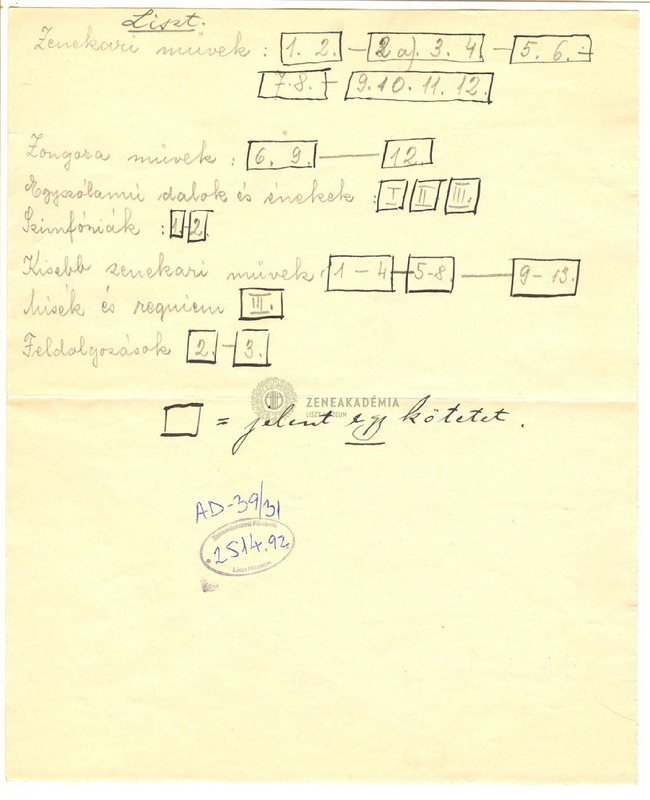 Liszt.
Zenekari művek : 1. 2. – 2 a). 3. 4 – 5. 6. –
7. 8. – 9. 10. 11. 12.
Zongora művek : 6. 9. — 12.
Egyszólamú dalok és énekek : I II III.
Szimfóniák : 1 - 2.
Kisebb zenekari művek : 1 – 4 – 5-8 — 9 – 13.
Misék és requiem III.
Feldolgozások 2. – 3.
ZENEAKADÉMIA
LISZT MÚZEUM
= jelent egy kötetet.
AD-39/31
Zeneművészeti Főiskola
2514.92
Liszt Múzeum